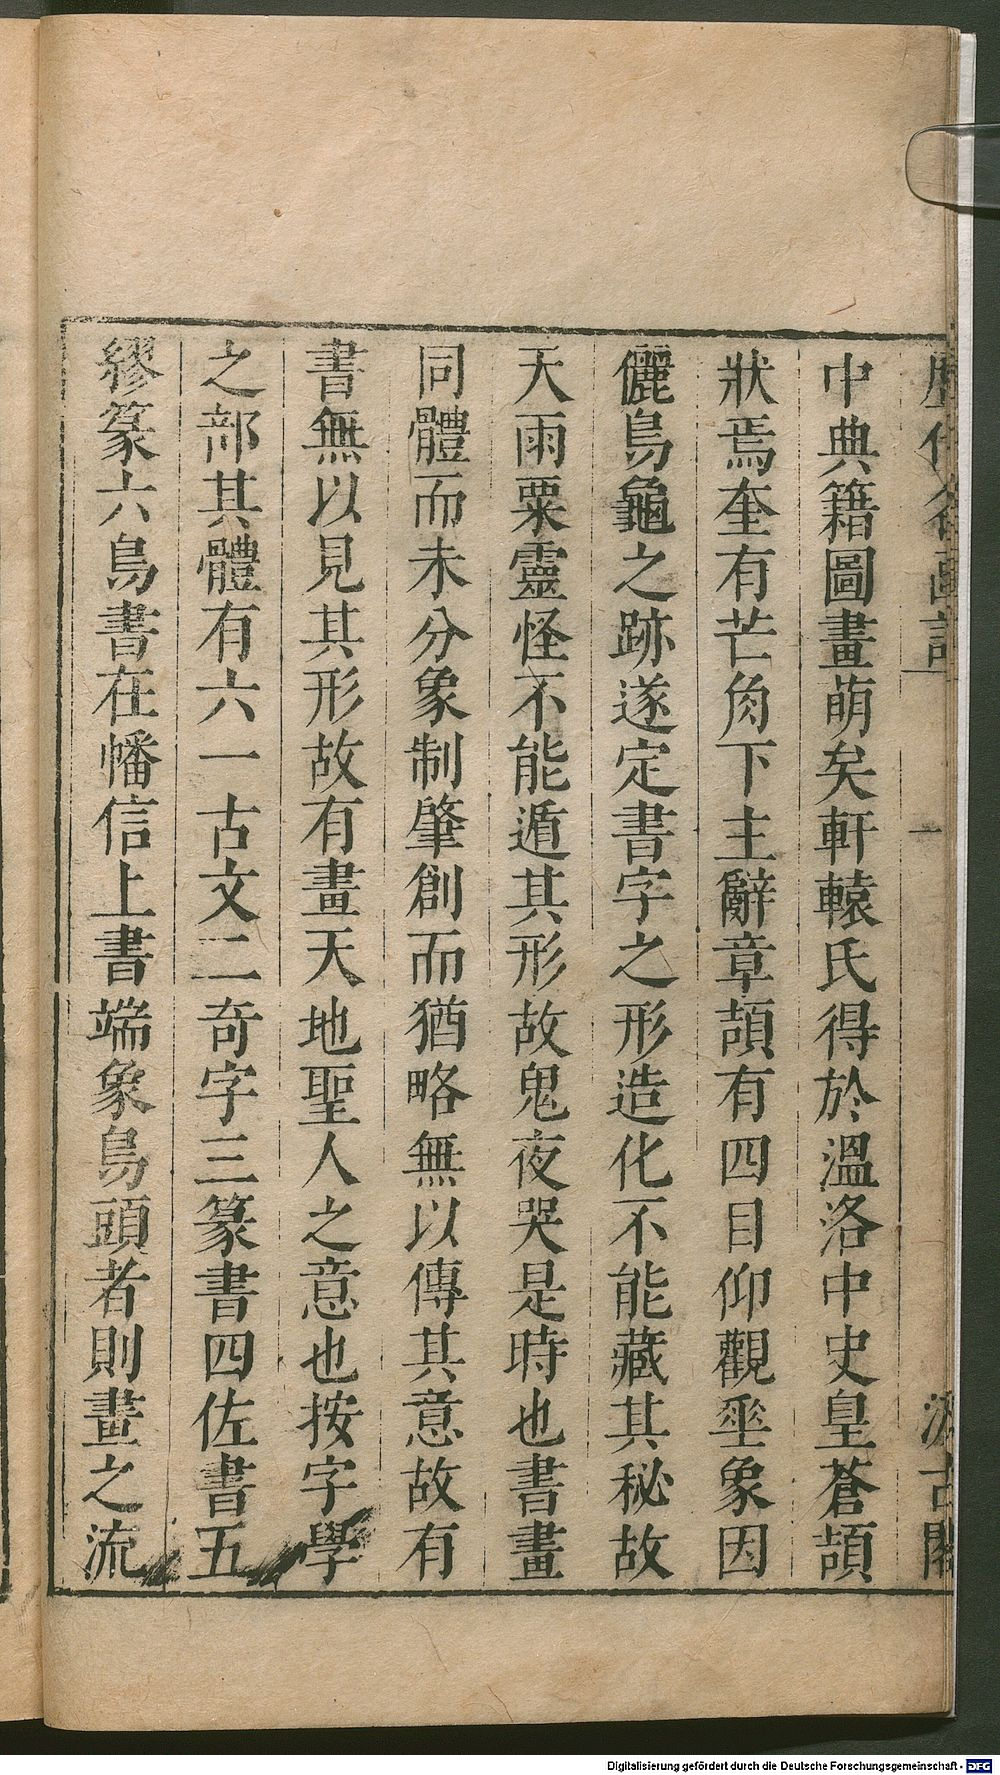 歷代名畫記
一
汲古閣
中典籍圖畫萌矣軒轅氏得於溫洛中史皇蒼頡
狀焉奎有芒角下主辭章頡有四目仰觀𠂹象因
儷鳥龜之跡遂定書字之形造化不能藏其秘故
天雨粟靈怪不能遁其形故鬼夜哭是時也書畫
同體而未分象制肇創而猶略無以傳其意故有
書無以見其形故有畫天地聖人之意也按字學
之部其體有六一古文二奇字三篆書四佐書五
繆篆六鳥書在幡信上書端象鳥頭者則畫之流
Digitalisierung gefördert durch die Deutsche Forschungsgemeinschaft - DFG